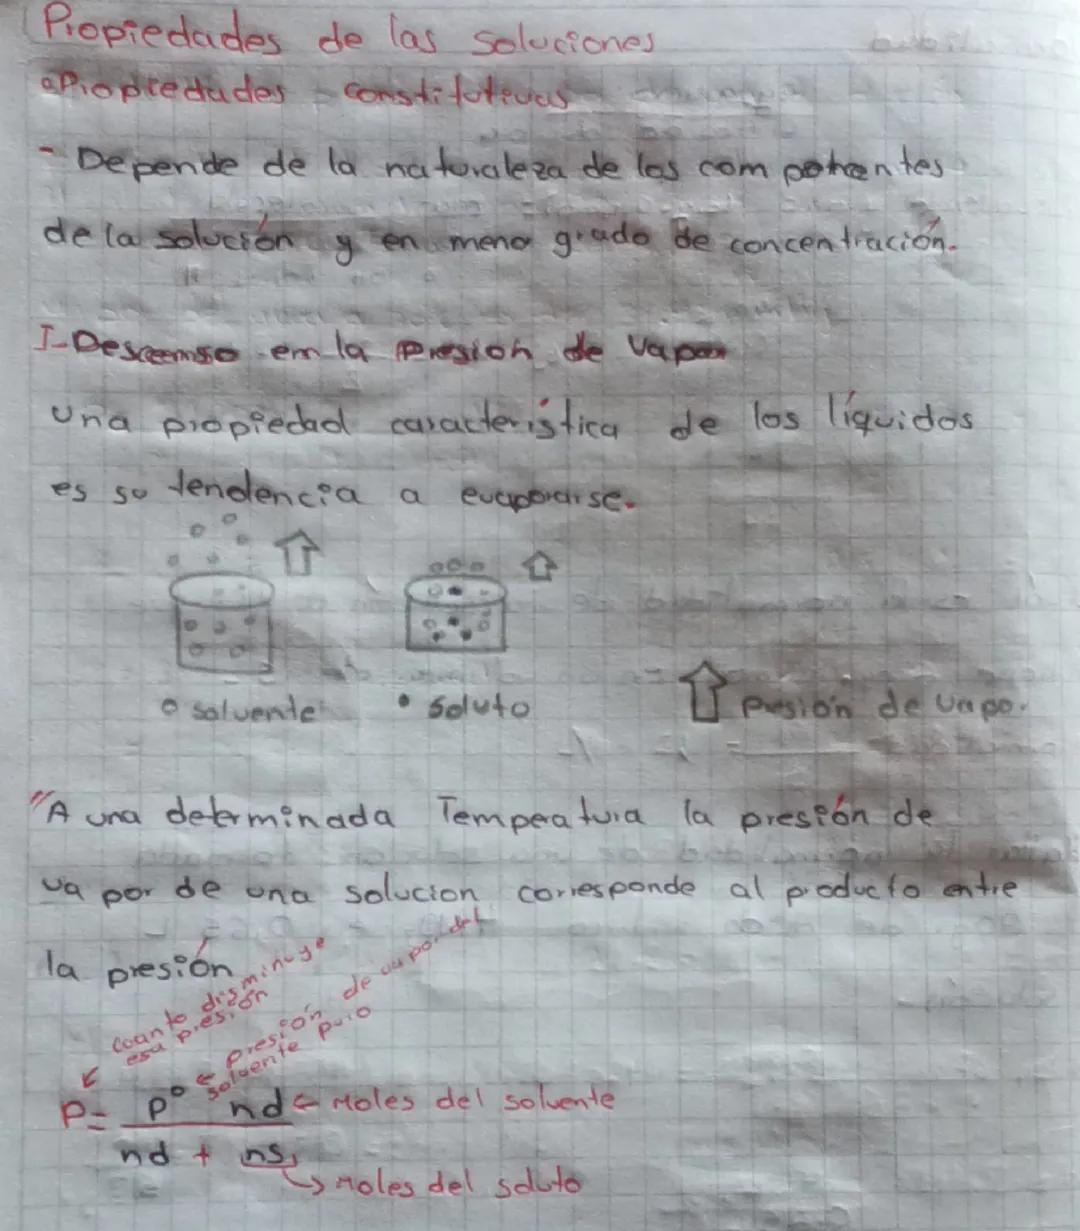 Propiedades de las soluciones
•Propiedades constitutivas
- Depende de la naturaleza de los componentes
de la solución y en meno grado de concentración.
I-Descemso em la presion de vapor
Una propiedad característica de los líquidos
es su tendencia a evaporarse.
o solvente • soluto presión de vapo.
"A una determinada Tempeatura la presión de
vapor de una solucion corresponde al producto entre
la presión
cuanto disminuye
esa presión
presión de vapor del
solvente puro
P= P° nd ← Moles del solvente
nd + ns,
→ Moles del soluto